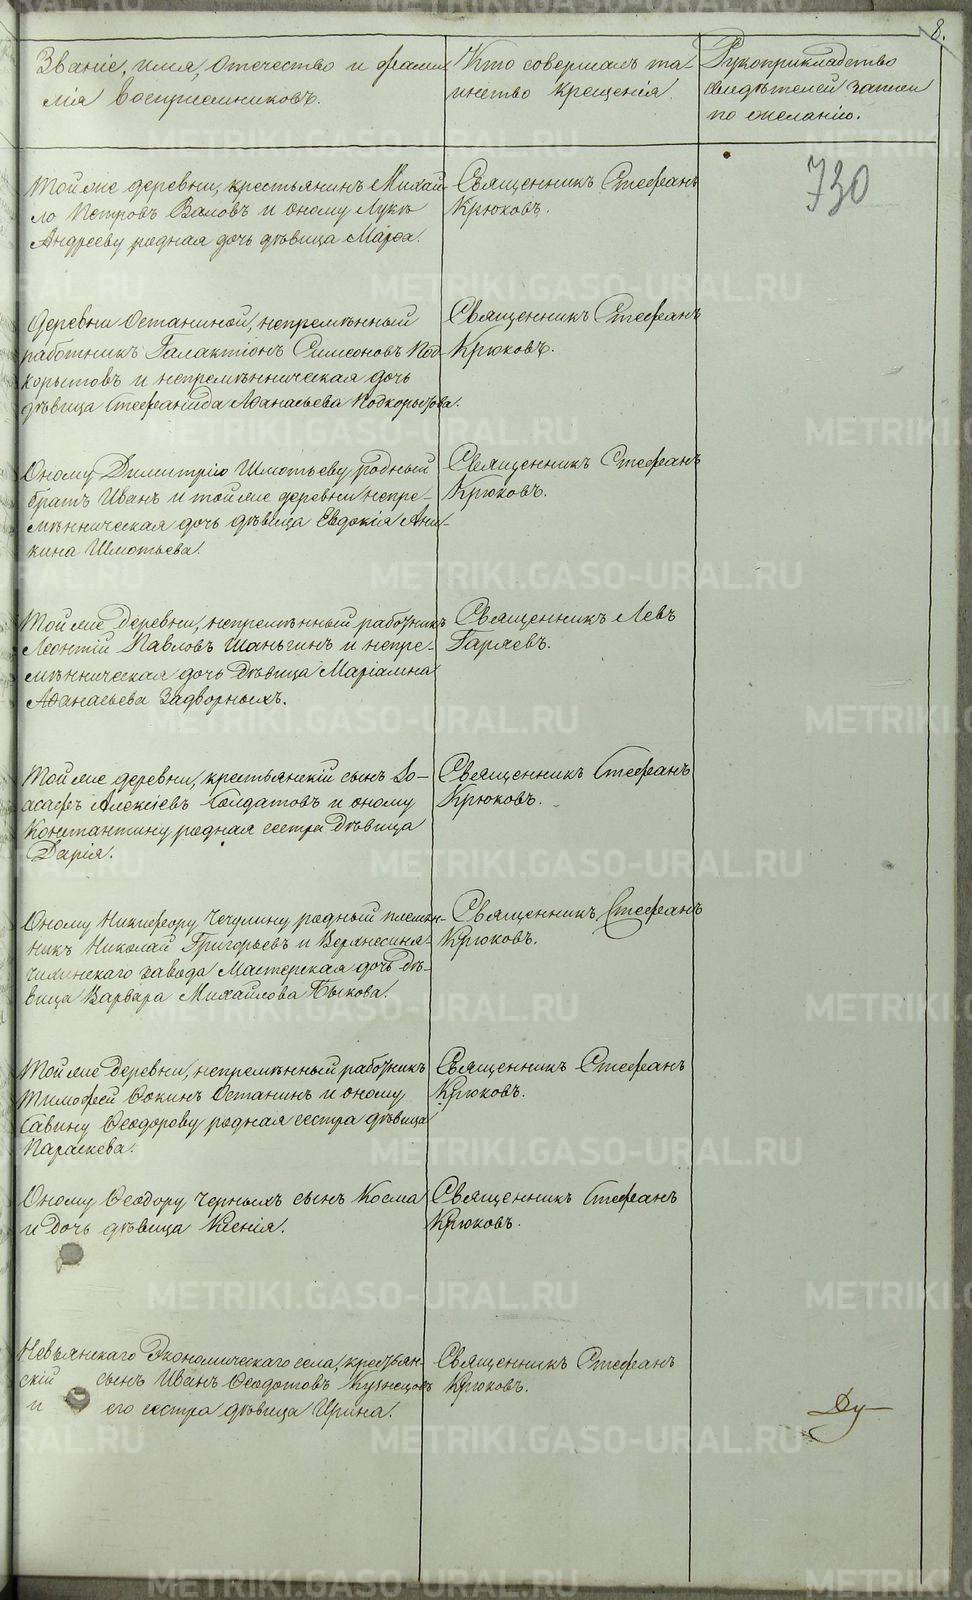 8.
Званіе, имя, отечество и фами
лія воспріемниковъ.
Кто совершалъ та-
инство крещенія.
Рукоприкладство
свидѣтелей записи
по желанію.
730
Той же деревни, крестьянинъ Михай
ло Петровъ Валовъ и оному Лукѣ
Андрееву родная дочь дѣвица Марѳа.
Священникъ Стефанъ
Крюковъ.
Деревни Останиной, непремѣнный
работникъ Галактіонъ Симеоновъ Под-
корытовъ и непремѣнническая дочь
дѣвица Стефанида Аѳанасьева Подкорытова.
Священникъ Стефанъ
Крюковъ.
Оному Димитрію Шмотьеву родный
братъ Иванъ и той же деревни непре-
мѣнническая дочь дѣвица Евдокія Ани-
кина Шмотьева.
Священникъ Стефанъ
Крюковъ.
Той же деревни, непремѣнный работникъ
Леонтій Павловъ Шаньгинъ и непре-
мѣнническая дочь дѣвица Маріамна
Аѳанасьева Задворныхъ.
Священникъ Левъ
Гаряевъ.
Той же деревни, крестьянскій сынъ Іо-
асафъ Алексіевъ Солдатовъ и оному
Константину родная сестра дѣвица
Дарія.
Священникъ Стефанъ
Крюковъ.
Оному Никифору Чечулину родный племян-
никъ Николай Григорьевъ и Верхнесиня-
чихинскаго завода Мастерская дочь дѣ-
вица Варвара Михайлова Быкова.
Священникъ Стефанъ
Крюковъ.
Той же деревни, непремѣнный работникъ
Тимофей Ѳокинъ Останинъ и оному
Савину Ѳеодорову родная сестра дѣвица
Параскева.
Священникъ Стефанъ
Крюковъ.
Оному Ѳеодору Черныхъ сынъ Косма
и дочь дѣвица Ксенія.
Священникъ Стефанъ
Крюковъ.
Невьянскаго Экономическаго села, крестьян-
скій сынъ Иванъ Ѳеодотовъ Кузнецовъ
и его сестра дѣвица Ирина.
Священникъ Стефанъ
Крюковъ.